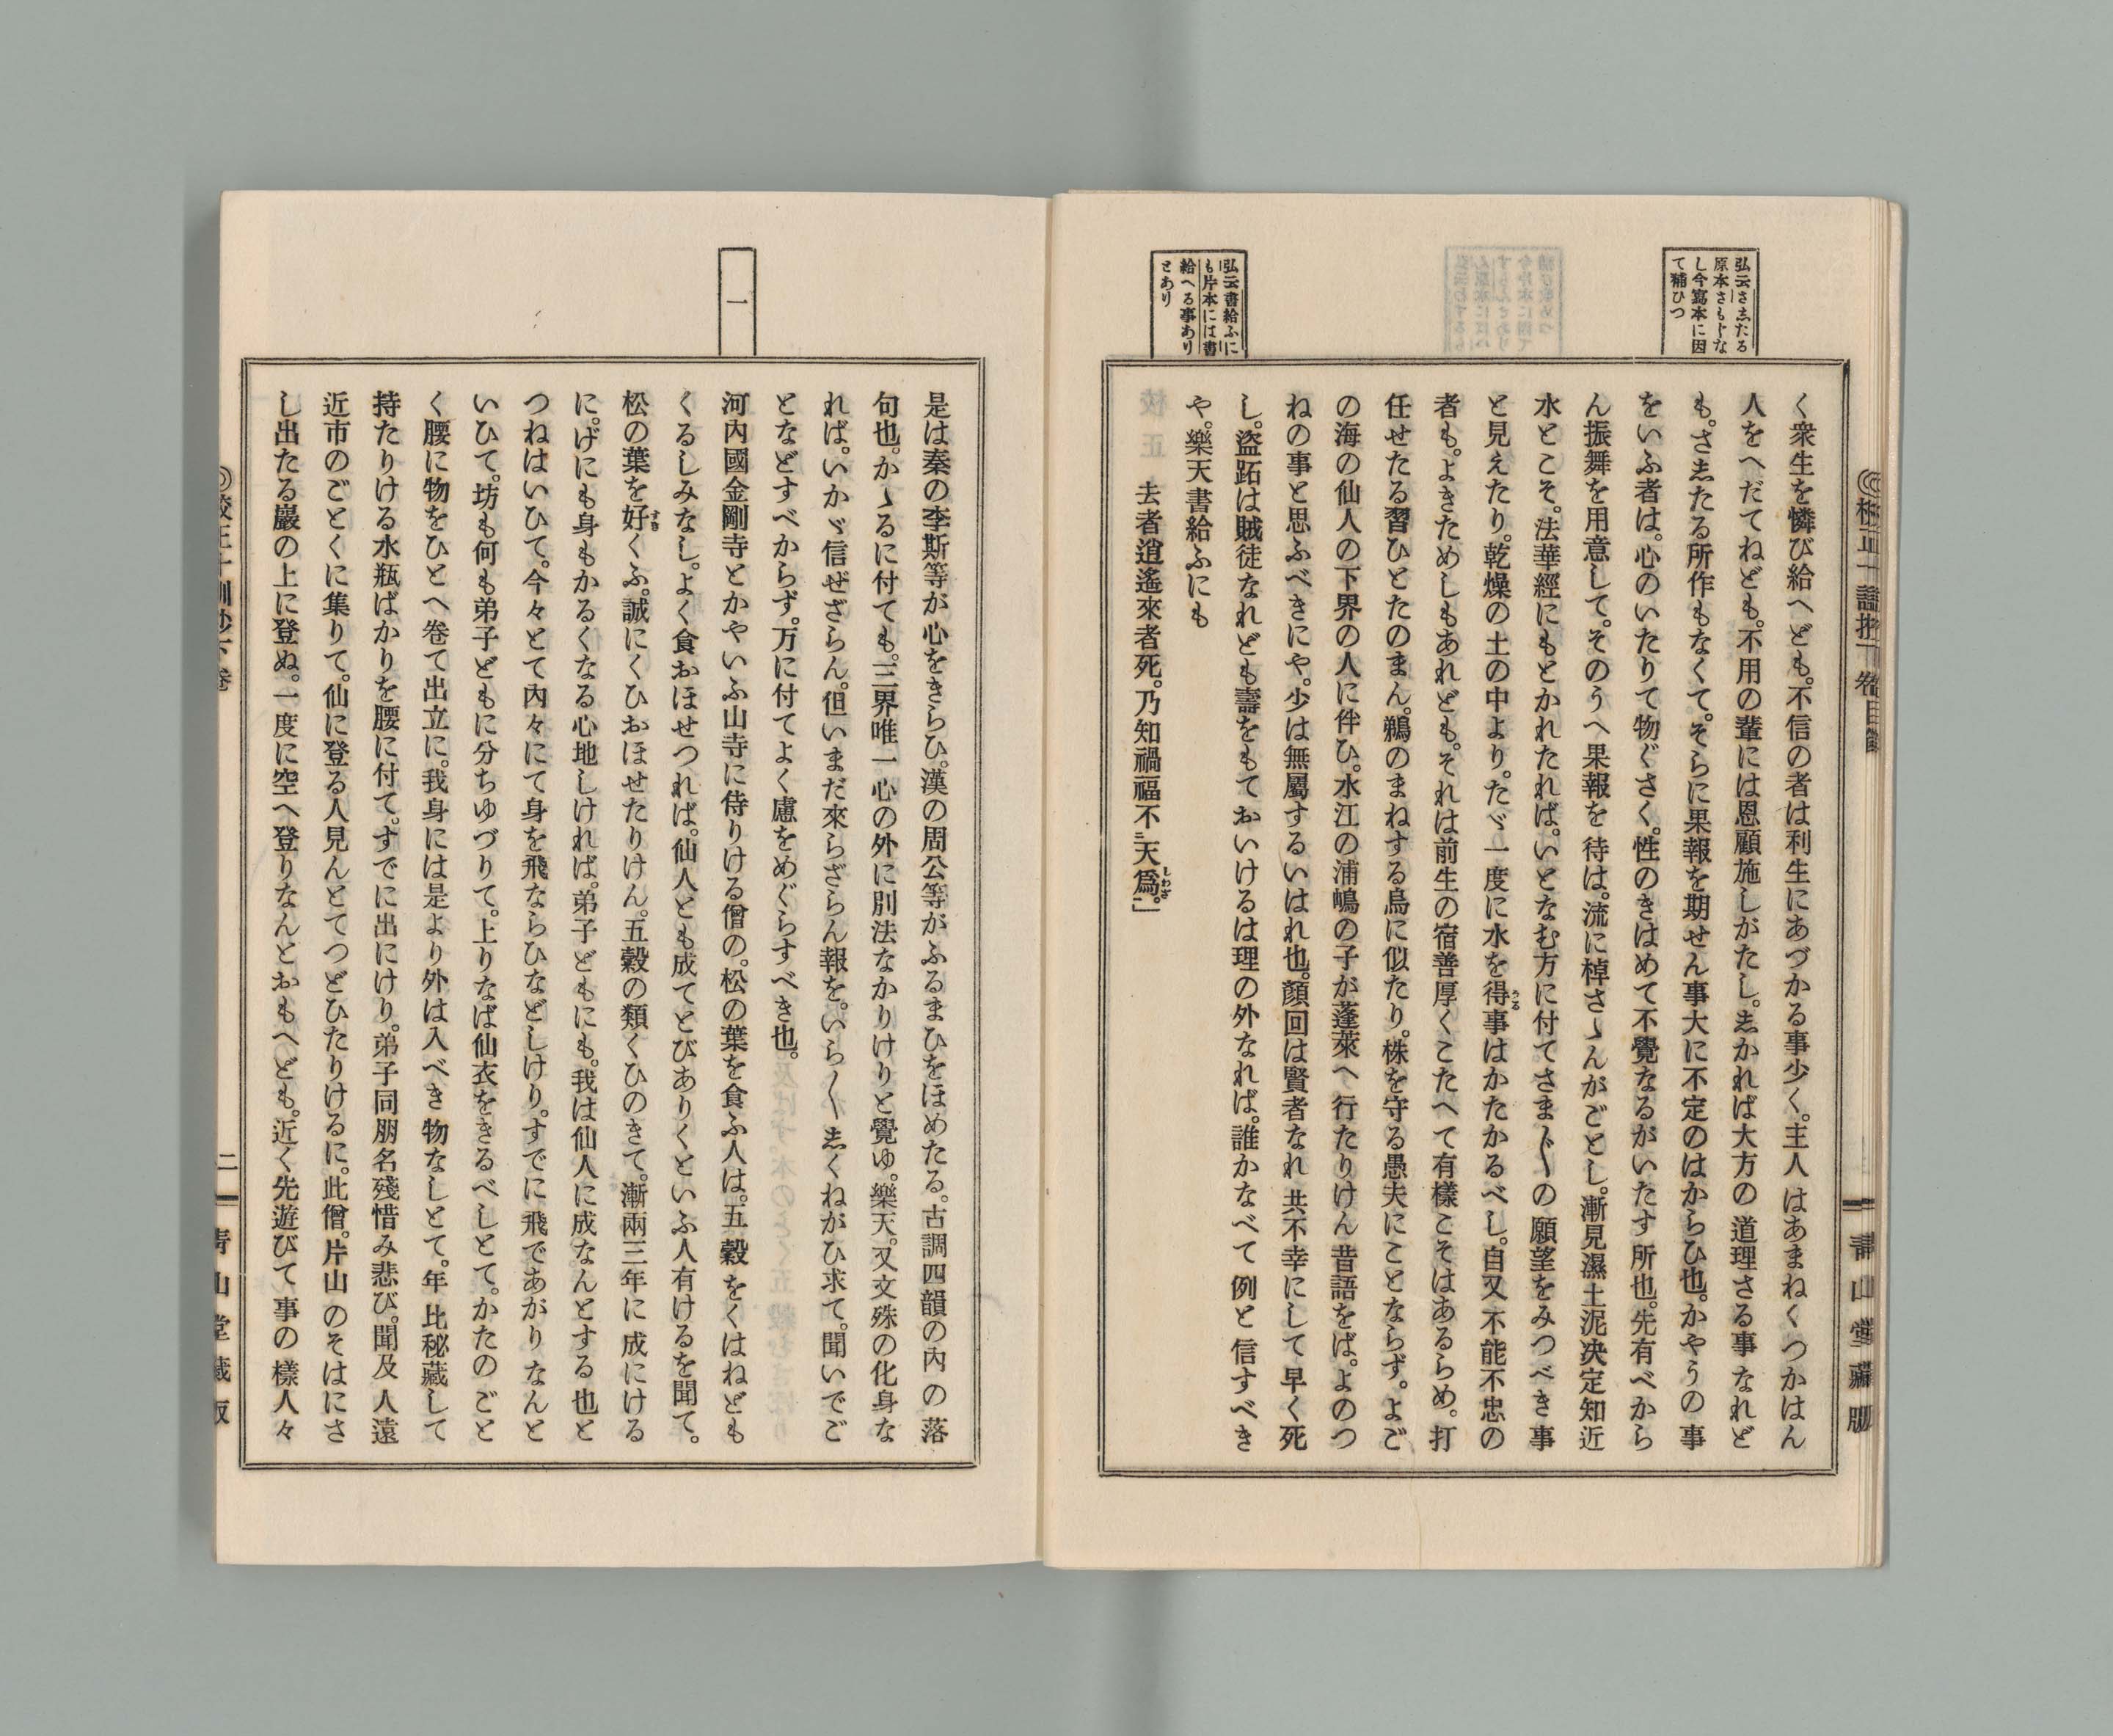 弘云さ志たる
原本さも〴〵な
し今寫本に因
て補ひつ
く衆生を憐び給へども。不信の者は利生にあづかる事少く。主人はあまねくつかはん
人をへだてねども。不用の輩には恩顧施しがたし。志かれば大方の道理さる事なれど
も。さ志たる所作もなくて。そらに果報を期せん事大に不定のはからひ也。かやうの事
をいふ者は。心のいたりて物ぐさく。性のきはめて不覺なるがいたす所也。先有べから
ん振舞を用意して。そのうへ果報を待は。流に棹さゝんがごとし。漸見濕土泥決定知近
水とこそ。法華經にもとかれたれば。いとなむ方に付てさま〴〵の願望をみつべき事
と見えたり。乾燥の土の中より。たゞ一度に水を得うる事はかたかるべし。自又不能不忠の
者も。よきためしもあれども。それは前生の宿善厚くこたへて有樣こそはあるらめ。打
任せたる習ひとたのまん。鵜のまねする烏に似たり。株を守る愚夫にことならず。よご
の海の仙人の下界の人に伴ひ。水江の浦嶋の子が蓬萊へ行たりけん昔語をば。よのつ
ねの事と思ふべきにや。少は無屬するいはれ也。顏回は賢者なれ共不幸にして早く死
し。盜跖は賊徒なれども壽をもておいけるは理の外なれば。誰かなべて例と信すべき
や。樂天書給ふにも
弘云書給ふに
も片本には書
給へる事あり
とあり
去者逍遙來者死。乃知禍福不二天爲しわざ。」
青山堂藏版
一
是は秦の李斯等が心をきらひ。漢の周公等がふるまひをほめたる。古調四韻の内の落
句也。かゝるに付ても。三界唯一心の外に別法なかりけりと覺ゆ。樂天。又文殊の化身な
れば。いかゞ信ぜざらん。但いまだ來らざらん報を。いら〳〵志くねがひ求て。聞いでご
となどすべからず。万に付てよく慮をめぐらすべき也。
河內國金剛寺とかやいふ山寺に侍りける僧の。松の葉を食ふ人は。五穀をくはねども
くるしみなし。よく食おほせつれば。仙人とも成てとびありくといふ人有けるを聞て。
松の葉を好すきくふ。誠にくひおほせたりけん。五穀の類くひのきて。漸兩三年に成にける
に。げにも身もかるくなる心地しければ。弟子どもにも。我は仙人に成なんとする也と
つねはいひて。今々とて內々にて身を飛ならひなどしけり。すでに飛であがりなんと
いひて。坊も何も弟子どもに分ちゆづりて。上りなば仙衣をきるべしとて。かたのごと
く腰に物をひとへ卷て出立に。我身には是より外は入べき物なしとて。年比秘藏して
持たりける水瓶ばかりを腰に付て。すでに出にけり。弟子同朋名殘惜み悲び。聞及人遠
近市のごとくに集りて。仙に登る人見んとてつどひたりけるに。此僧。片山のそはにさ
し出たる巖の上に登ぬ。一度に空へ登りなんとおもへども。近く先遊びて事の樣人々
◎校正十訓抄下卷
二
青山堂藏版